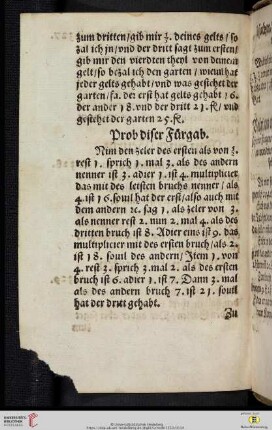 zum dritten/gib mir ȝ. deines gelts/so
zal ich jn/vnd der drit sagt zum ersten/
gib mir den vierdten theyl von deinem
gelt/so bezal ich den garten/wieuil hat
jeder gelts gehabt/vnd was gestehet der
garten/fa. der erst hat gelts gehabt
der ander 18. vnd der dritt 21. fl/vnd
gestehet der garten 25. fl.
Prob diser Fürgab.
Nim den zeler des ersten als von
rest 1. sprich 1. mal 3. als des andern
nenner ist 3. adier 1. ist 4. multiplicier
das mit des letsten bruchs nenner/als
4. ist 16. souil hat der erst/also auch mit
dem andern ꝛc. sag 1. als zeler von 3.
als nenner rest 2. nun 2. mal 4. als des
dritten bruch ist 8. Adier eins ist 9. das
multiplicier mit des ersten bruch/als 2.
ist 18. souil des andern/Item 1. von
4. rest 3. sprich 3. mal 2. als des ersten
bruch ist 6. adier 1. ist 7. Dann 3. mal
als des andern bruch 7. ist 21. souil
hat der dritt gehabt.
Zu